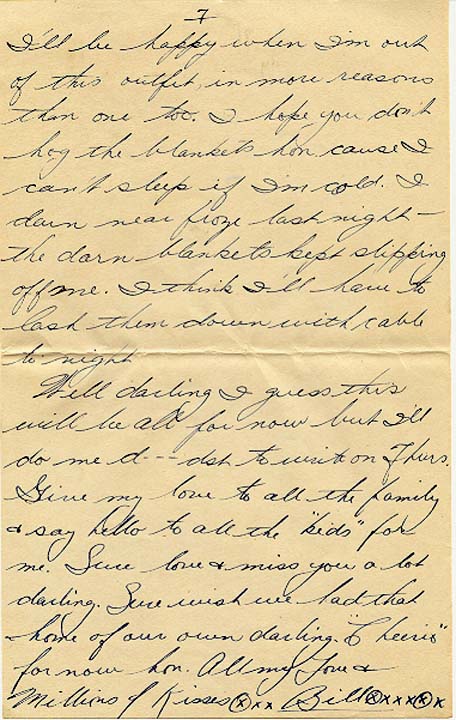 7
I'll be happy when I'm out
of this outfit, in more reasons
than one too. I hope you don't
hog the blankets hon cause I
can't sleep if I'm cold. I
darn near froze last night –
the darn blankets kept slipping
off me. I think I'll have to
lash them down with cable
to night
Well darling I guess this
will be all for now but I'll
do me d---dst to write on Thurs.
Give my love to all the family
& say hello to all the "kids" for
me. Sure love & miss you a lot
darling. Sure wish we had that
home of our own darling. "Cheerio"
for now hon. All my Love &
Millions of Kisses ⓧxx Bill ⓧxxxⓧx